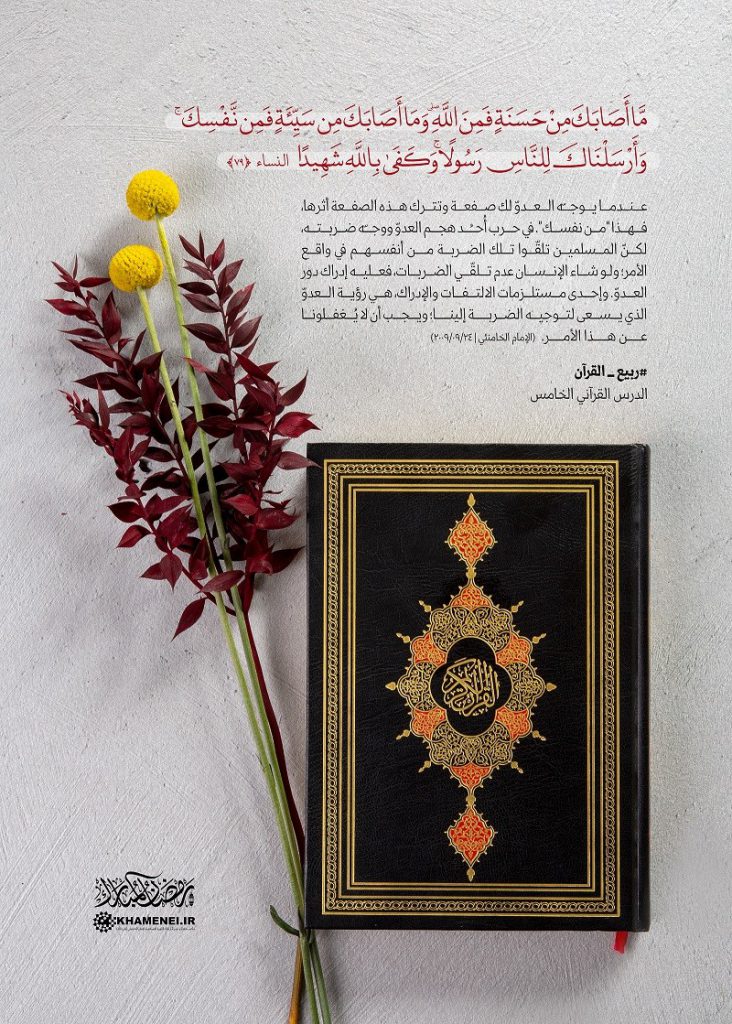 مَّا أَصَابَكَ مِنْ حَسَنَةٍ فَمِنَ اللَّهِ ۖ وَمَا أَصَابَكَ مِن سَيِّئَةٍ فَمِن نَّفْسِكَ ۚ
وَأَرْسَلْنَاكَ لِلنَّاسِ رَسُولًا ۚ وَكَفَىٰ بِاللَّهِ شَهِيدًا النساء ﴿٧٩﴾
عندما يوجه العدوّ لك صفعة وتترك هذه الصفعة أثرها،
فهذا "من نفسك". في حرب أُحُد هجم العدوّ ووجّه ضربته،
لكنّ المسلمين تلقّوا تلك الضربة من أنفسهم في واقع
الأمر؛ ولو شاء الإنسان عدم تلقّي الضربات، فعليه إدراك دور
العدوّ. وإحدى مستلزمات الالتفات والإدراك، هي رؤية العدوّ
الذي يسعى لتوجيه الضربة إلينا؛ ويجب أن لا يُغفلونا
عن هذا الأمر. (الإمام الخامنئي | ٢٠٠٩/٠٩/٢٤)
#ربيع_القرآن
الدرس القرآني الخامس
القرآن الكريم
رمضان المبارك
KHAMENEI.IR